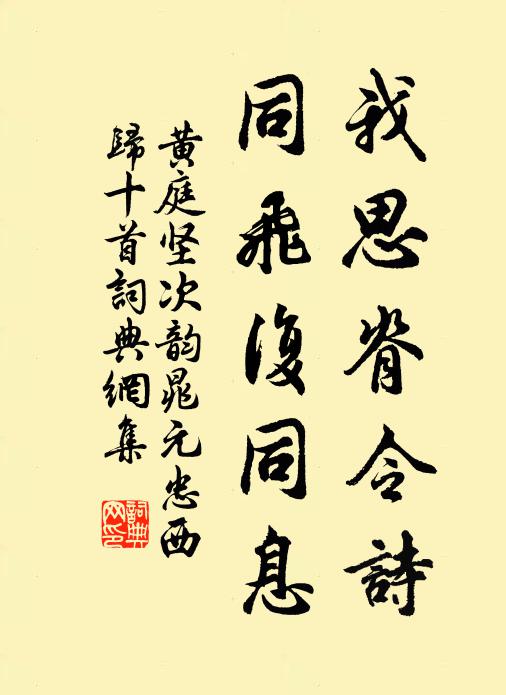 我思脊令詩
同飛復同息
黄庭坚次韵晁元忠西
歸十首詞典網集
詞典网印